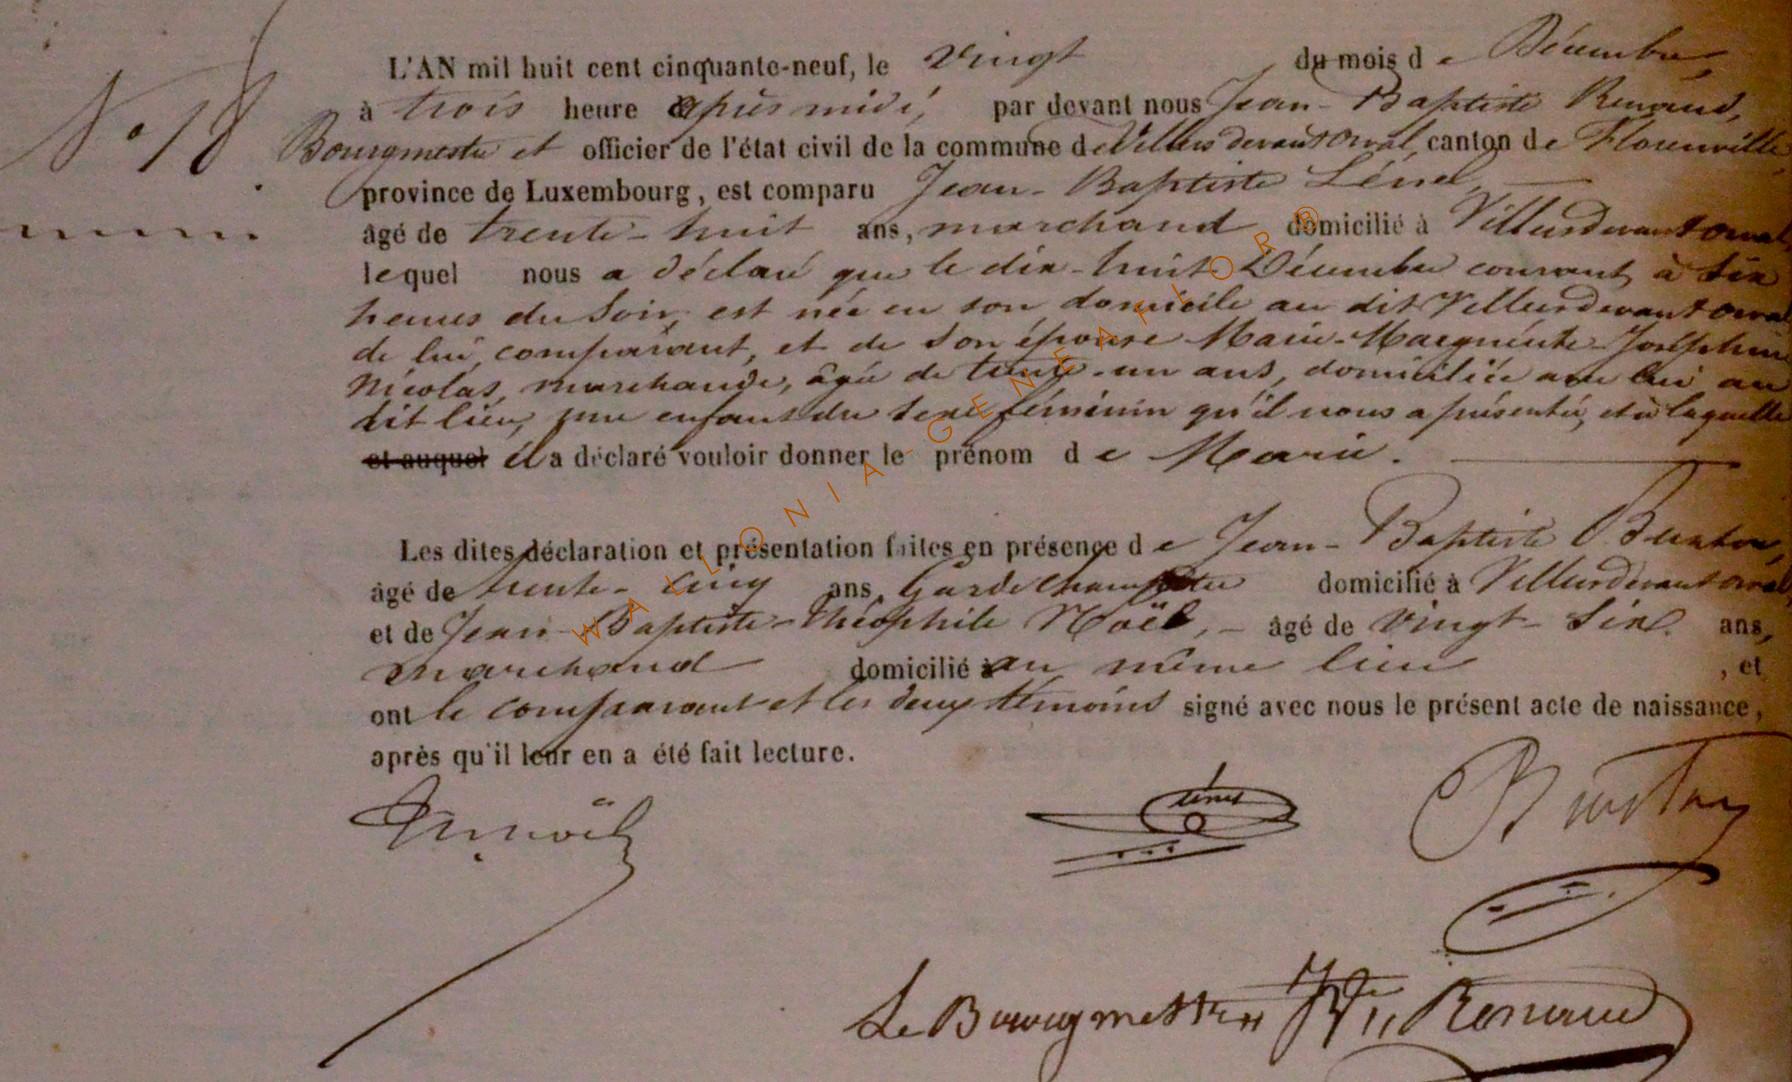 L'AN mil huit cent cinquante-neuf, le vingt du mois de Décembre,
à trois heure après midi, par devant nous Jean-Baptiste Renaud,
N° 18 Bourgmestre et officier de l'état civil de la commune de Villers devant Orval, canton de Florenville,
province de Luxembourg, est comparu Jean-Baptiste Lénel,
âgé de trente-huit ans, marchand domicilié à Villers devant Orval
lequel nous a déclaré que le dix-huit Décembre courant, à six
heures du soir, est née en son domicile au dit Villers devant Orval
de lui, comparant, et de son épouse Marie-Marguérite-Joséphine
Nicolas, marchande, âgée de trente-un ans, domiciliée avec lui au
dit lieu, une enfant du sexe féminin qu'il nous a présentée, et à laquelle
et auquel il a déclaré vouloir donner le prénom de Marie.
Les dites déclaration et présentation faites en présence de Jean-Baptiste
âgé de trente-cinq ans, Garde Champêtre domicilié à Villers devant Orval
et de Jean-Baptiste-Théophile Noël, âgé de vingt-six ans,
marchand domicilié au même lieu, et
ont le comparant et les deux témoins signé avec nous le présent acte de naissance,
après qu'il leur en a été fait lecture.
Noël
Le Bourgmestre Renaud
WALLONIA-GENEAFLOR®